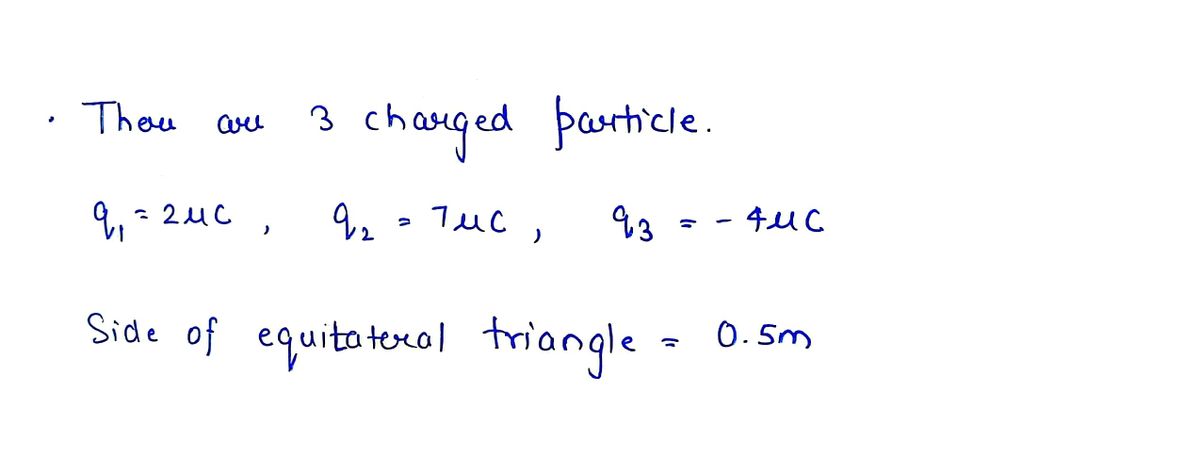 . There are 3 charged particle.
q₁ = 2μC , q₂ = 7μC , q₃ = - 4μC
Side of equitateral triangle = 0.5m